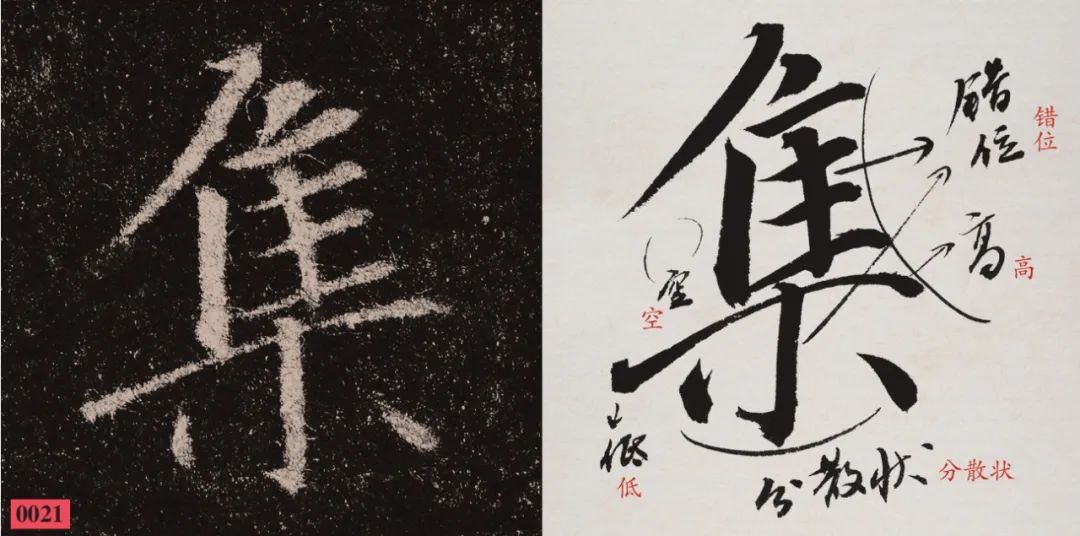 集
0021
集
错位
错位
高
高
空
空
低
低
分散状
分散状